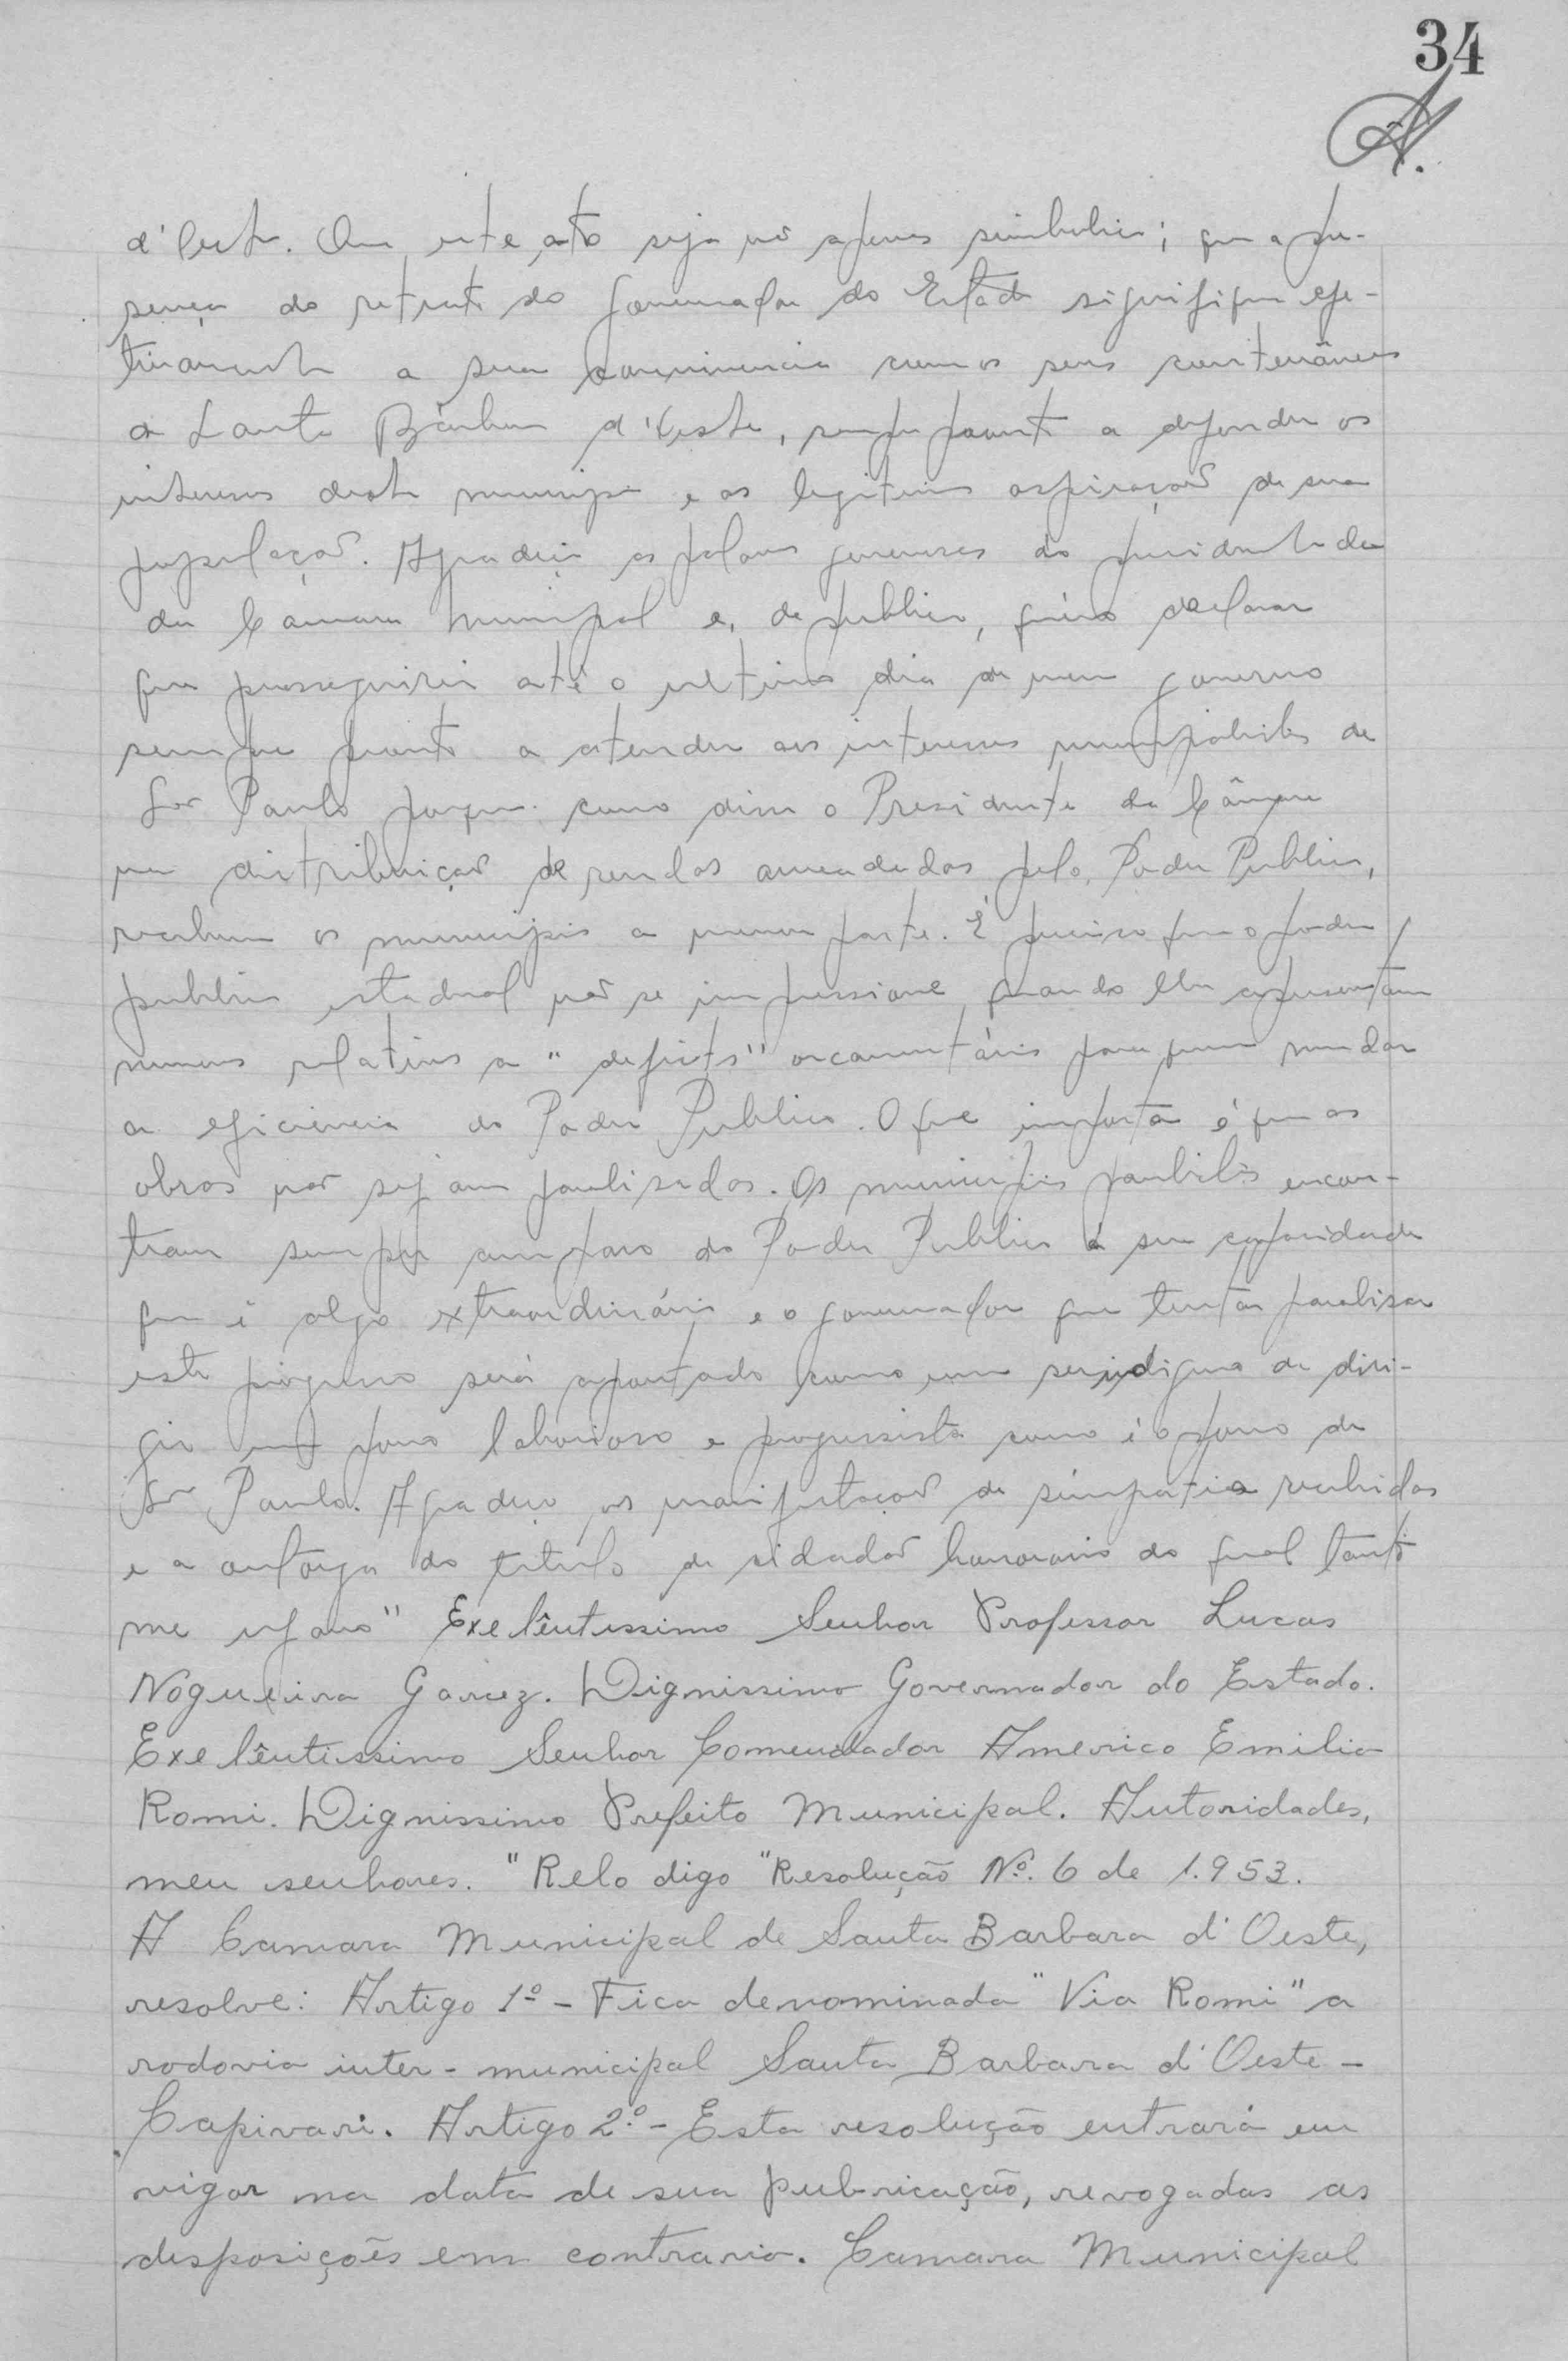 34
A.
d'Oeste. Que este ato seja não apenas simbolico; que a pre-
sença do retrato do governador do Estado signifique efe-
tivamente a sua convivencia com os seus conterrâneos
de Santa Bárbara d'Oeste, sempre pronto a defender os
interesses deste municipio e as legitimas aspirações de sua
população. Agradeço as palavras generosas do presidente da
da Câmara Municipal e, de publico, quero declarar
que prosseguirei até o ultimo dia de meu governo
sempre pronto a atender aos interesses municipalistas de
São Paulo porque como disse o Presidente da Câmara
na distribuição de rendas arrecadadas pelo Poder Publico,
recebem os municipios a menor parte. É preciso que o poder
publico estadual não se impressione quando lhe apresentam
numeros relativos a "deficits" orcamentários para
a eficiencia do Poder Publico. O que importa é que as
obras não sejam paralisadas. Os municipios paulistas encon-
tram sempre amparo do Poder Publico à sua capacidade
que é algo extraordinário e o governador que tentar paralisar
este progresso será apontado como um ser indigno de diri-
gir um povo laborioso e progressista como é o povo de
São Paulo. Agradeço as manifestações de simpatia recebidas
e a outorga do titulo de cidadão honorario do qual tanto
me ufano" Exelêntissimo Senhor Professor Lucas
Nogueira Garcez. Dignissimo Governador do Estado.
Exelêntissimo Senhor Comendador Americo Emilio
Romi. Dignissimo Prefeito Municipal. Autoridades,
meu senhores. "Relo digo "Resolução Nº. 6 de 1.953.
A Camara Municipal de Santa Barbara d'Oeste,
resolve: Artigo 1º - Fica denominada "Via Romi" a
rodovia inter-municipal Santa Barbara d'Oeste -
Capivari. Artigo 2º - Esta resolução entrará em
vigor na data de sua pubricação, revogadas as
disposições em contrario. Camara Municipal